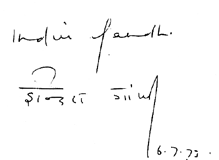 Indira Gandhi
इन्दिरा गांधी
6.7.72